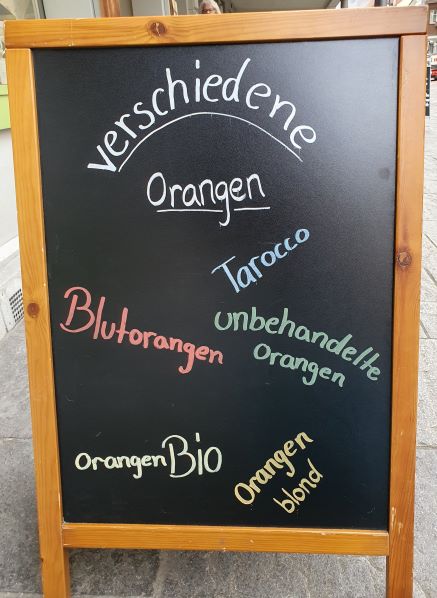 verschiedene
Orangen
Tarocco
Blutorangen
unbehandelte
Orangen
Orangen Bio
Orangen
blond